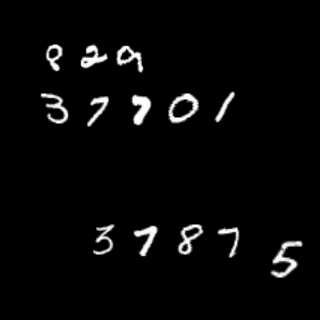 829
37701
37875